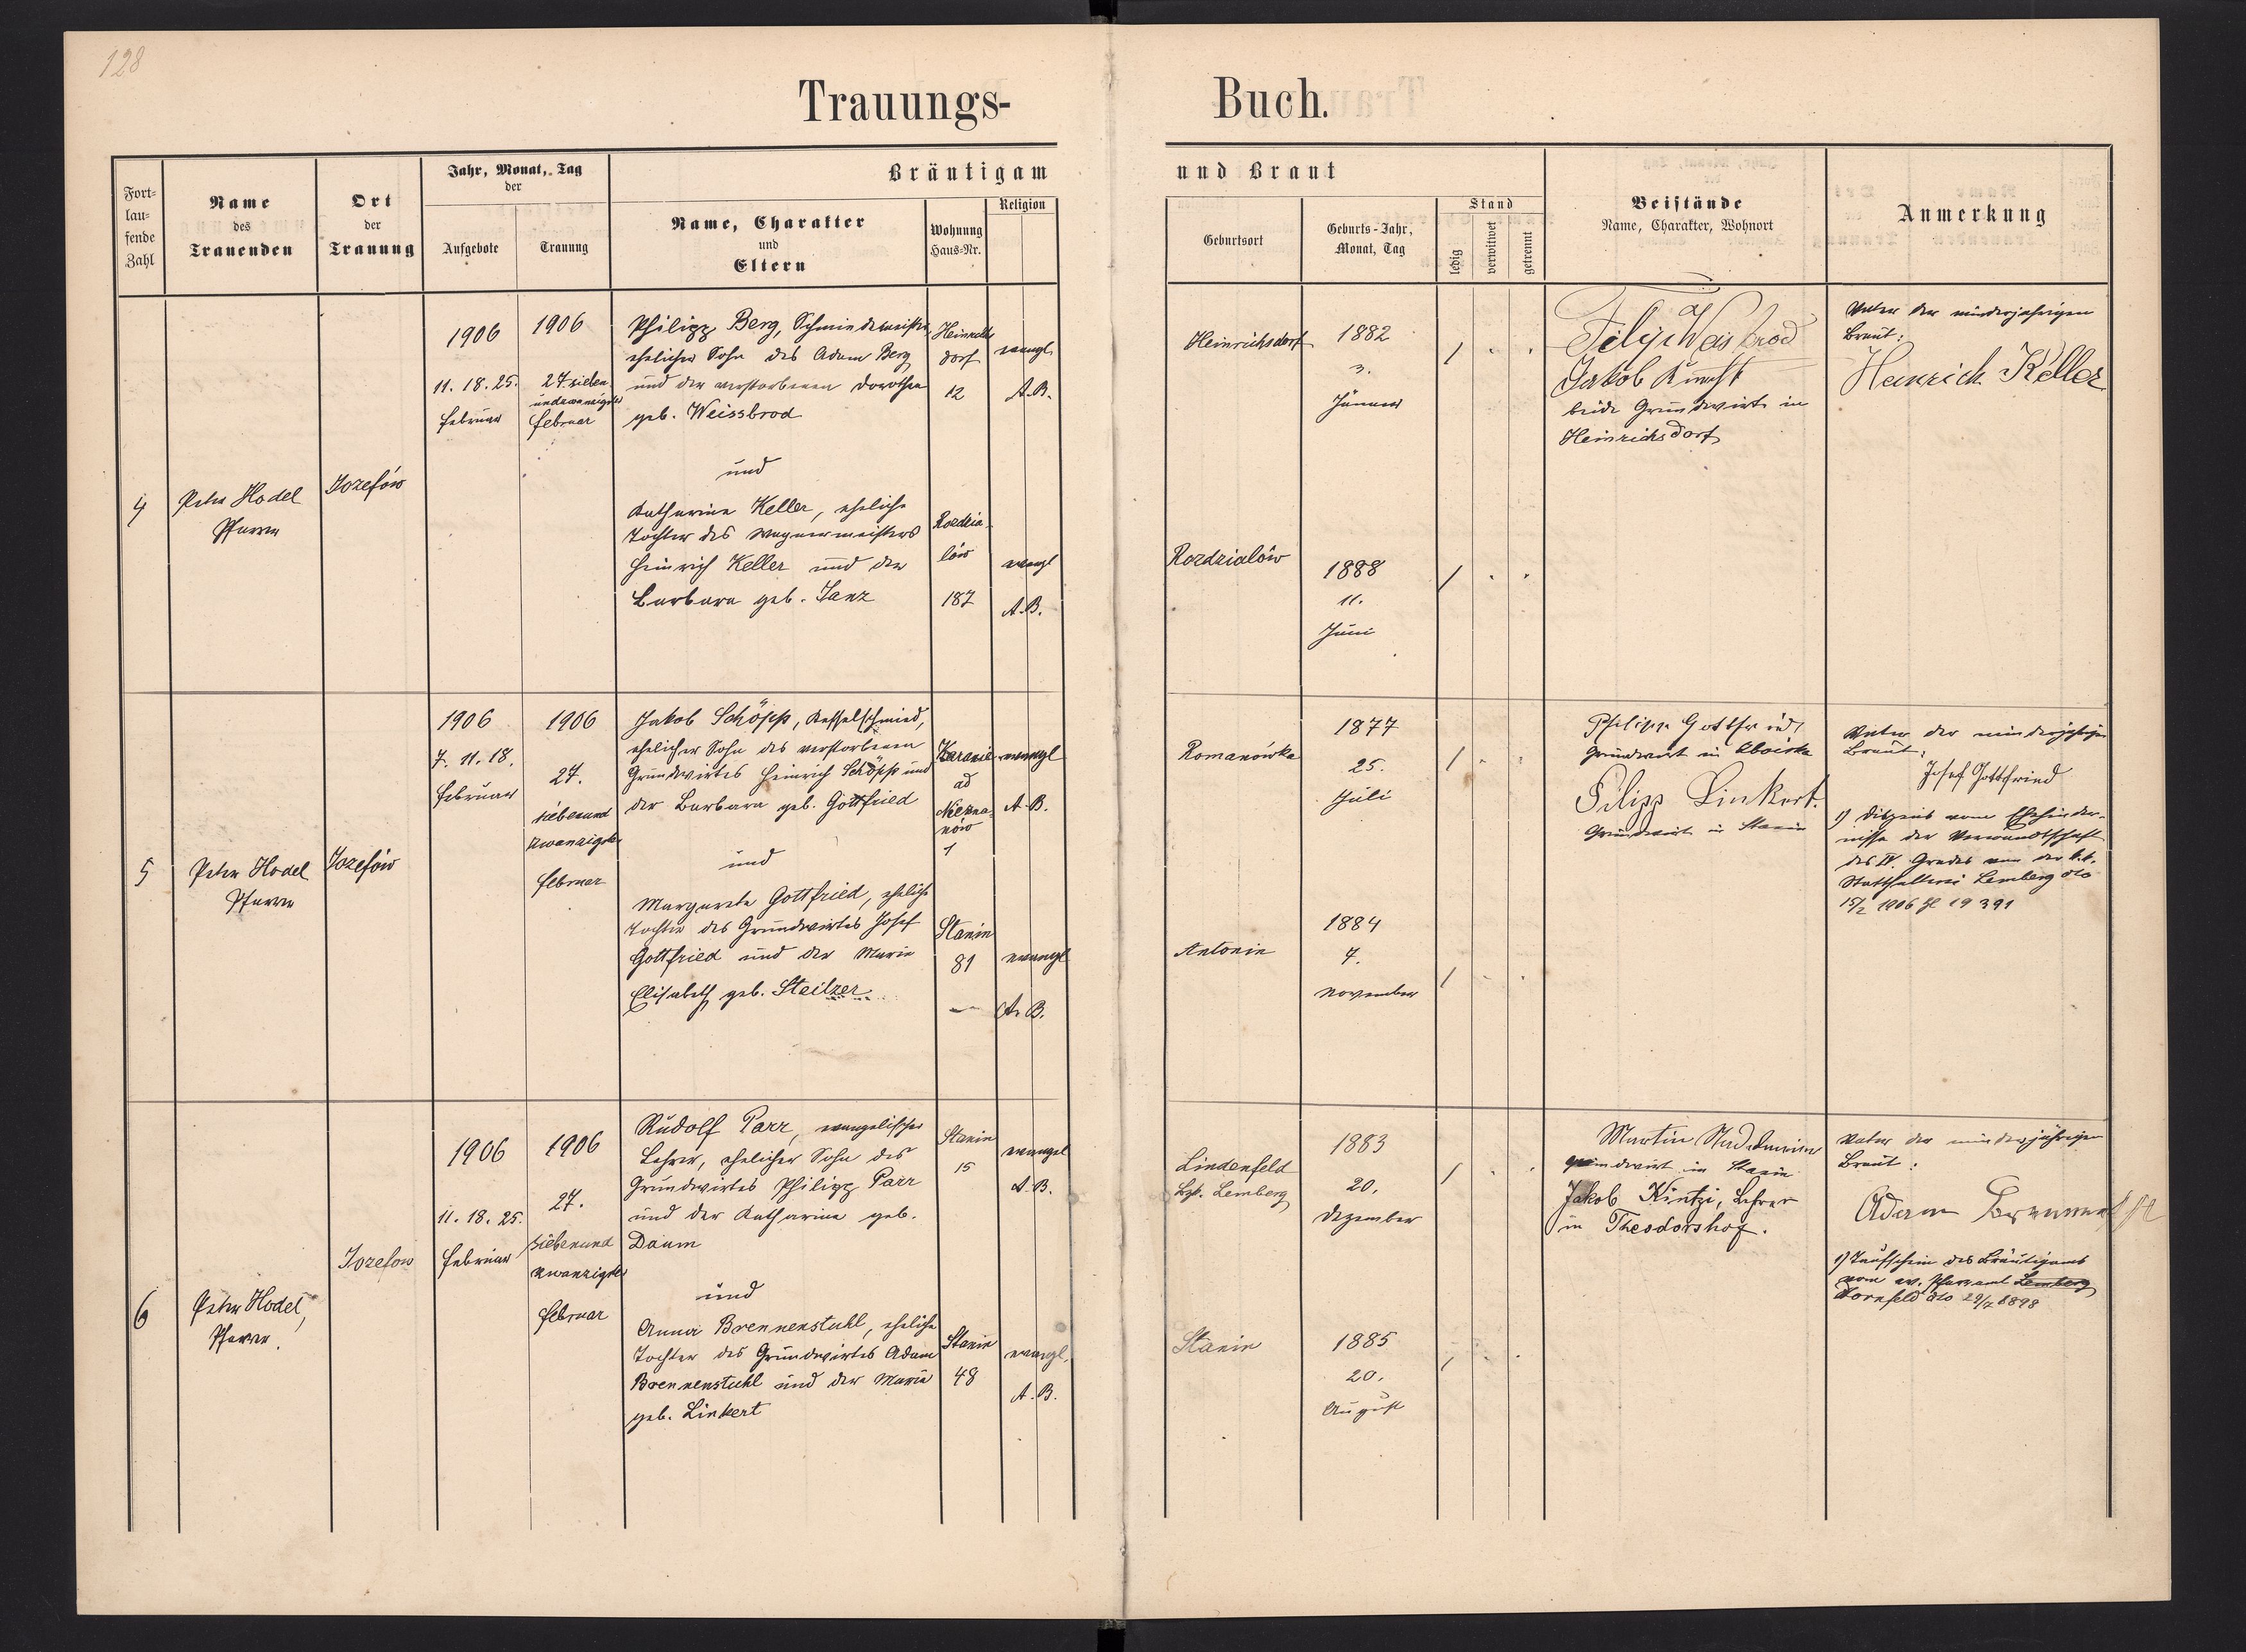 128
Trauungs-
Buch.
Fort-
lau-
fende
Zahl
Name
des
Trauenden
Ort
der
Trauung
Jahr, Monat, Tag
der
Aufgebote
Trauung
Bräutigam
und Braut
Name, Charakter
und
Eltern
Wohnung
Haus-Nr.
Religion
Geburtsort
Geburts-Jahr,
Monat, Tag
Stand
ledig
verwitwet
getrennt
Beistände
Name, Charakter, Wohnort
Anmerkung
4
Peter Hodel
Pfarrer
Jozefów
1906
11. 18. 25.
Februar
1906
27. sieben
undzwanzigster
Februar
Philipp Berg, Schmiedemeister,
ehelicher Sohn des Adam Berg
und der verstorbenen Dorothea
geb. Weissbrod
und
Katharina Keller, eheliche
Tochter des Wagnermeisters
Heinrich Keller und der
Barbara geb. Janz
Heinrichs
dorf
12
evangl.
A. B.
Rozdzia-
lów
187
evangl
A. B.
Heinrichsdorf
1882
3.
Jänner
Rozdzialów
1888
11.
Juni
Filip Weisbrod
Jakob
beide Grundwirte in
Heinrichsdorf
Vater der minderjährigen
Braut:
Heinrich Keller
5
Peter Hodel
Pfarrer
Jozefów
1906
7. 11. 18.
Februar
1906
27.
siebenund
zwanzigster
Februar
Jakob Schöpp, Kesselschmied,
ehelicher Sohn des verstorbenen
Grundwirtes Heinrich Schöpp und
der Barbara geb. Gottfried
und
Margareta Gottfried, eheliche
Tochter des Grundwirtes Josef
Gottfried und der Maria
Elisabeth geb. Steitzer
ad
Niezna-
nów
1
evangl
A. B.
Stanin
81
evangl
A. B.
Romanówka
1877
25.
Juli
Antonin
1884
7.
November
Philipp Gottfried,
Grundwirt in
Filipp Linkert.
Grundwirt in Stanin
Vater der minderjährigen
Braut:
Josef Gottfried
1) Dispens vom Ehehinder-
nisse der Verwandtschaft
des IV. Grades von der k.k.
Statthalterei Lemberg dto
15/2 1906 Zl 19391
6
Peter Hodel,
Pfarrer.
Jozefow
1906
11. 18. 25.
Februar
1906
27.
siebenund
zwanzigster
Februar
Rudolf Parr, evangelischer
Lehrer, ehelicher Sohn des
Grundwirtes Philipp Parr
und der Katharina geb.
Daum
und
Anna Brennenstuhl, eheliche
Tochter des Grundwirtes Adam
Brennenstuhl und der Maria
geb. Linkert
Stanin
15
evangel
A. B.
Stanin
48
evangl.
A. B.
Lindenfeld
Bzk. Lemberg
1883
20.
Dezember
Stanin
1885
20.
August
Martin
Grundwirt in Stanin
Jakob Kintzi, Lehrer
in Theodorshof.
Vater der minderjährigen
Braut:
Adam
1) Taufschein des Bräutigams
vom ev. Pfarramt Lemberg
Dornfeld dto 29/7 1898